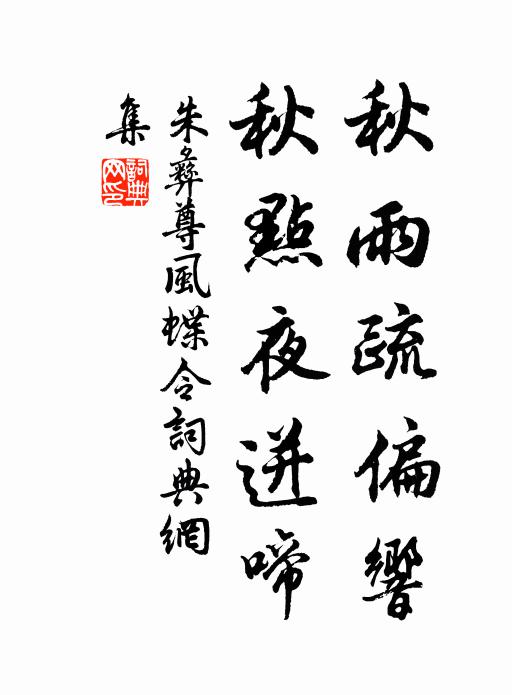 秋雨疏偏響
秋點夜迸啼
朱彝尊風蝶令詞典網
集
詞典
网印